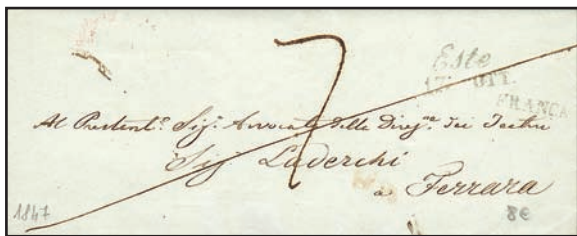 Este
17. OTT.
FRANCA
7
Al Prestent.º Sig.r Avvocato delle Direz.ne dei Teatri
Sig. Laderchi
a Ferrara
1847
8€